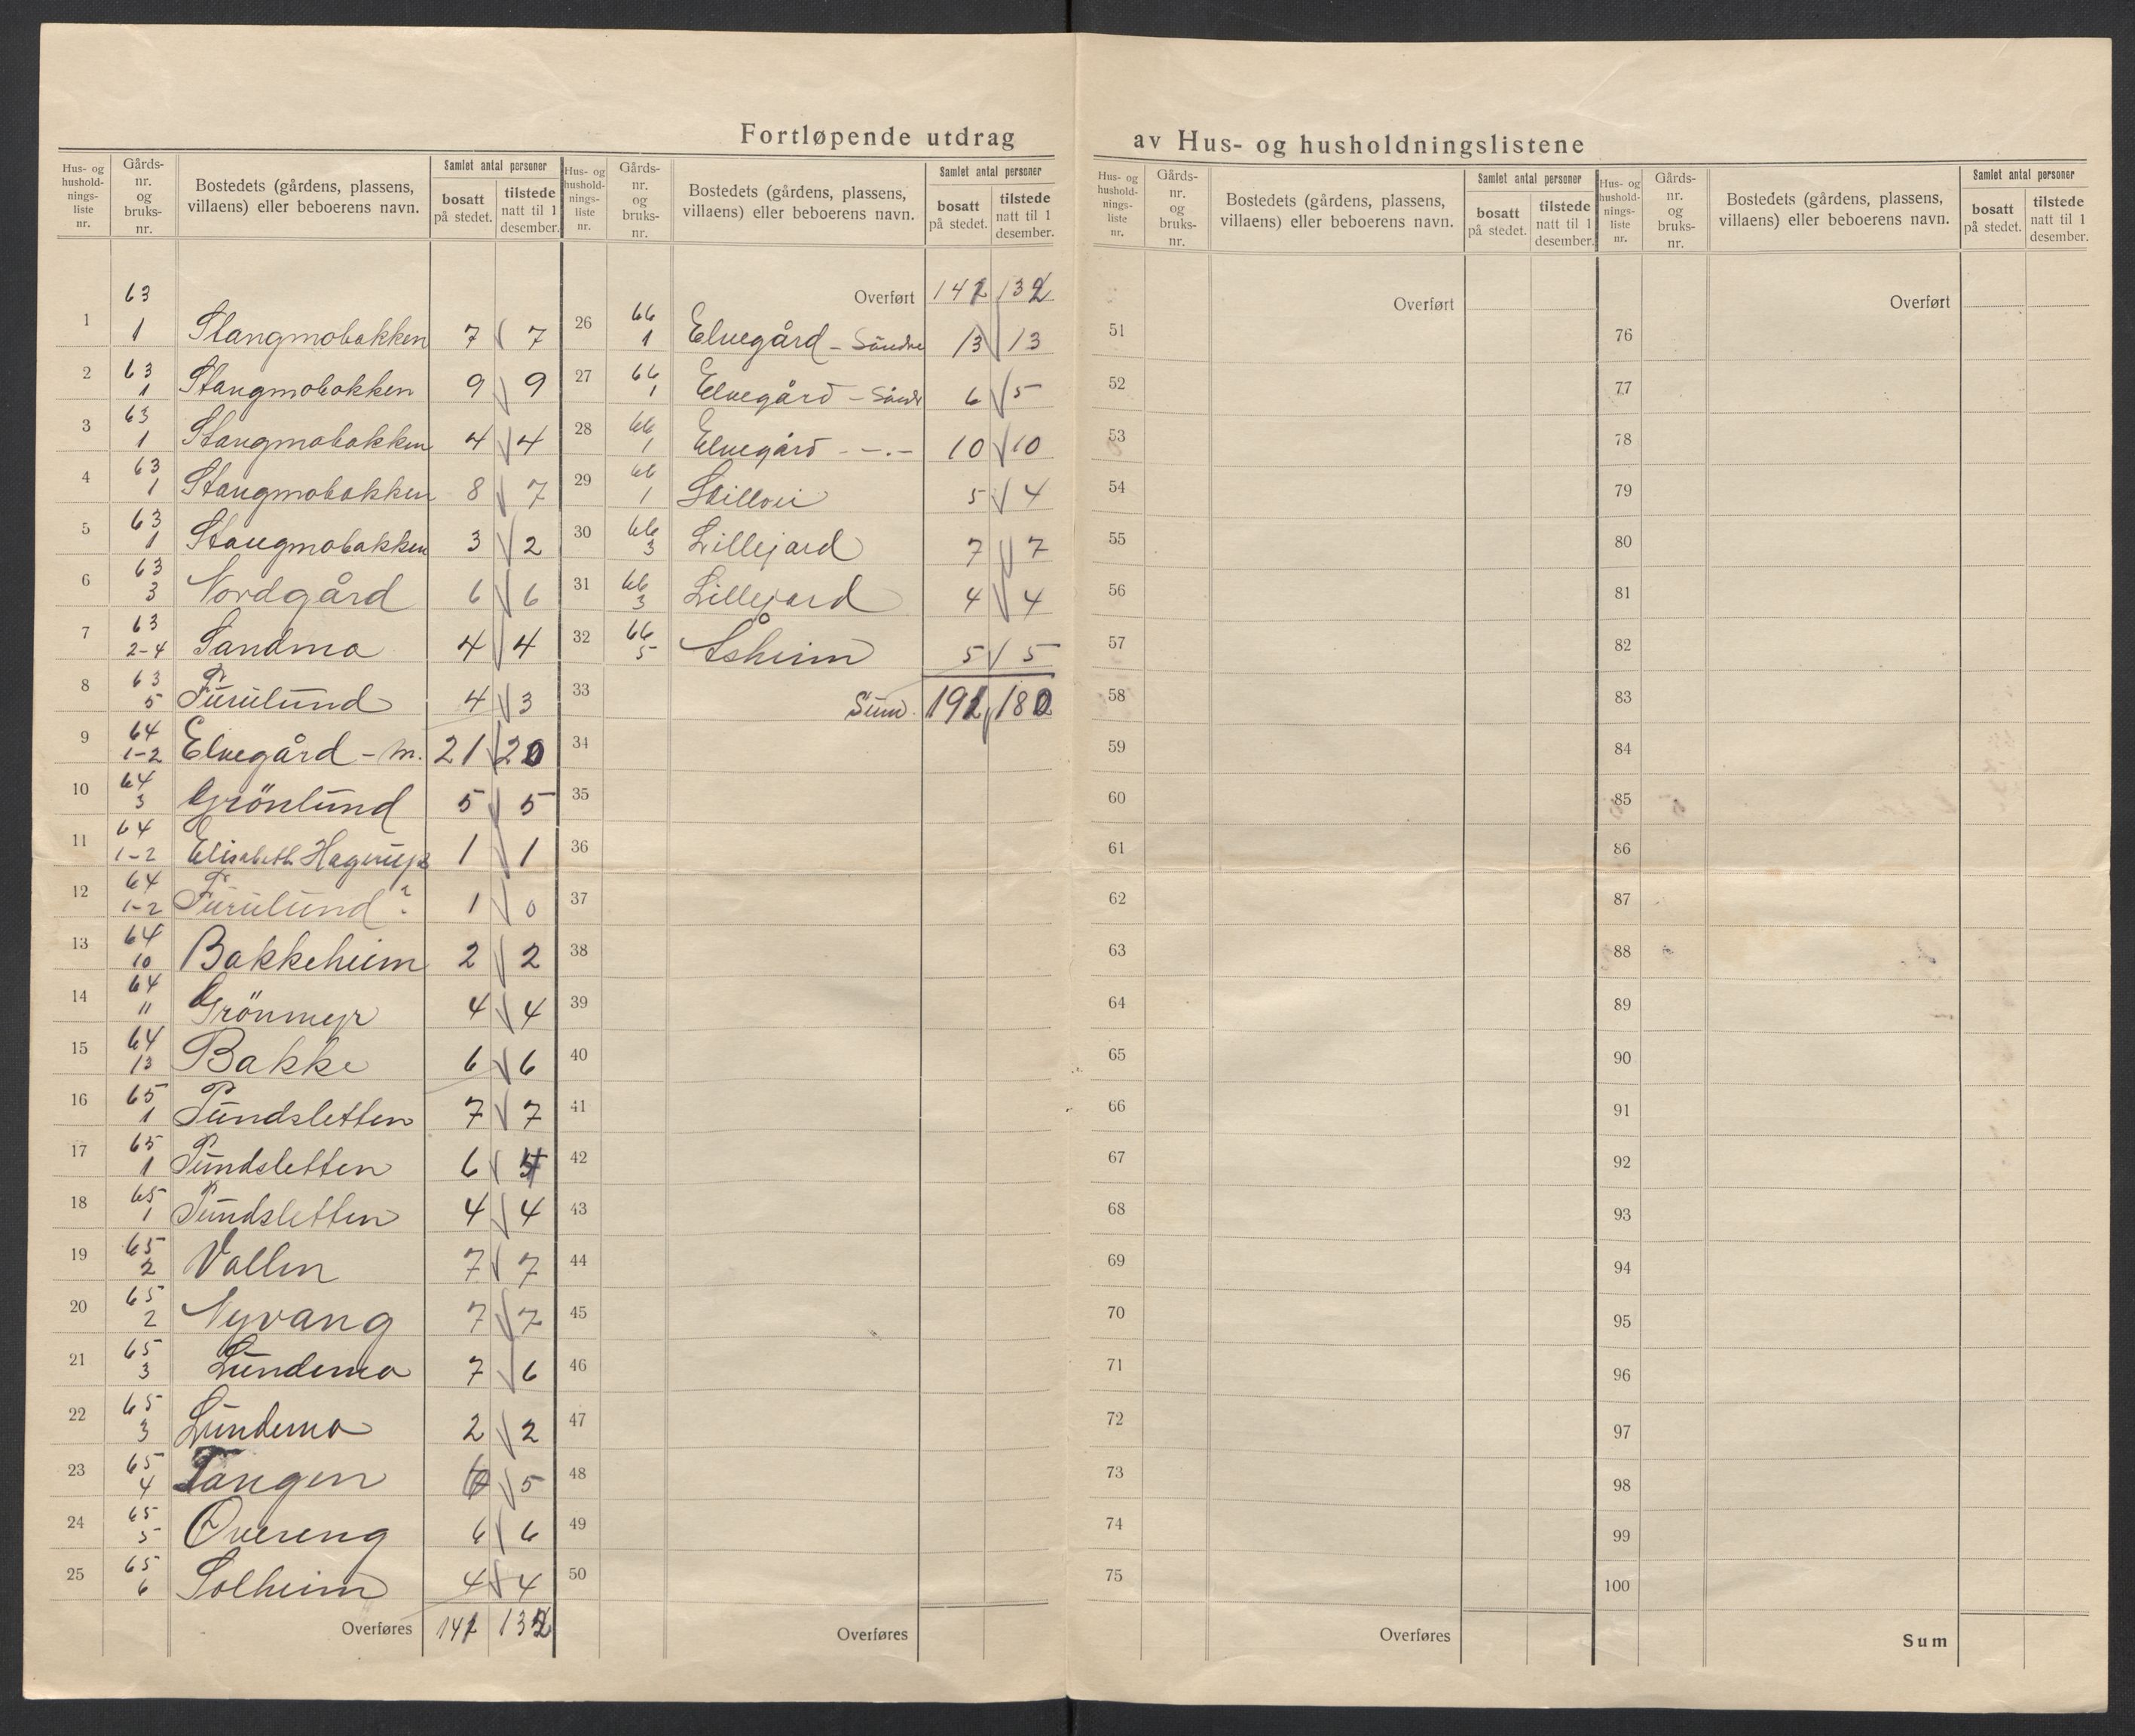 Fortløpende utdrag av Hus- og husholdningslistene
Hus- og husholdnings-liste nr. Gårds-nr. og bruks-nr. Bostedets (gårdens, plassens, villaens) eller beboerens navn. Samlet antal personer bosatt på stedet. tilstede natt til 1 desember.
1 63 1 Stangmobakken 7 7
2 63 1 Stangmobakken 9 9
3 63 1 Stangmobakken 4 4
4 63 1 Stangmobakken 8 7
5 63 1 Stangmobakken 3 2
6 63 3 Nordgård 6 6
7 63 2-4 Sandmo 4 4
8 63 5 Furulund 4 3
9 64 1-2 Elvegård - m. 21 20
10 64 3 Grönlund 5 5
11 64 1-2 Elisabeth Hagerup 1 1
12 64 1-2 Furulund? 1 0
13 64 10 Bakkeheim 2 2
14 64 11 Grönmyr 4 4
15 64 13 Bakke 6 6
16 65 1 Pundsletten 7 7
17 65 1 Pundsletten 6
18 65 1 Pundsletten 4 4
19 65 2 Vollen 7 7
20 65 2 Nyvang 7 7
21 65 3 Lundemo 7 6
22 65 3 Lundemo 2 2
23 65 4 Tangen 5
24 65 5 Övereng 6 6
25 65 6 Solheim 4 4
Overføres 141 132
Hus- og husholdnings-liste nr. Gårds-nr. og bruks-nr. Bostedets (gårdens, plassens, villaens) eller beboerens navn. Samlet antal personer bosatt på stedet. tilstede natt til 1 desember.
Overført 141 132
26 66 1 Elvegård - Söndre 13 13
27 66 1 Elvegård - Söndr 6 5
28 66 1 Elvegård - -.- 10 10
29 66 1 5 4
30 66 3 Lillejord 7 7
31 66 3 Lillejord 4 4
32 66 5 Åsheim 5 5
33 Sum. 191 180
34
35
36
37
38
39
40
41
42
43
44
45
46
47
48
49
50
Overføres
Hus- og husholdnings-liste nr. Gårds-nr. og bruks-nr. Bostedets (gårdens, plassens, villaens) eller beboerens navn. Samlet antal personer bosatt på stedet. tilstede natt til 1 desember.
Overført
51
52
53
54
55
56
57
58
59
60
61
62
63
64
65
66
67
68
69
70
71
72
73
74
75
Overføres
Hus- og husholdnings-liste nr. Gårds-nr. og bruks-nr. Bostedets (gårdens, plassens, villaens) eller beboerens navn. Samlet antal personer bosatt på stedet. tilstede natt til 1 desember.
Overført
76
77
78
79
80
81
82
83
84
85
86
87
88
89
90
91
92
93
94
95
96
97
98
99
100
Sum